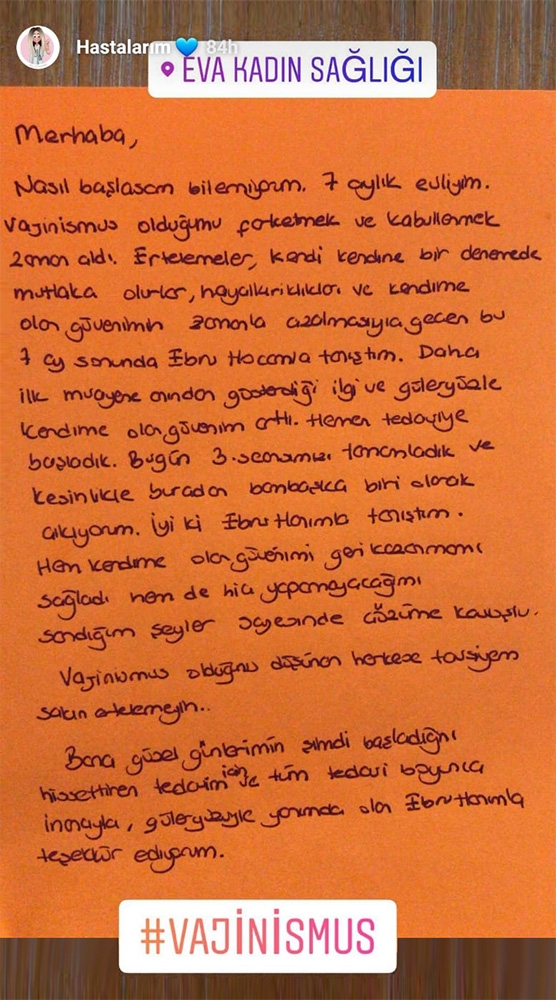 Hastalarım 💙 84h
EVA KADIN SAĞLIĞI
Merhaba,
Nasıl başlasam bilemiyorum. 7 aylık evliyim.
Vajinismus olduğumu farketmek ve kabullenmek
zaman aldı. Ertelemeler, kendi kendine bir denemede
mutlaka olurlar, hayalkırıklıkları ve kendime
olan güvenimin zamanla azalmasıyla geçen bu
7 ay sonunda Ebru Hocamla tanıştım. Daha
ilk muayene anından gösterdiği ilgi ve güleryüzle
kendime olan güvenim arttı. Hemen tedaviye
başladık. Bugün 3. seansımızı tamamladık ve
kesinlikle buradan bambaşka biri olarak
çıkıyorum. İyi ki Ebru Hanımla tanıştım.
Hem kendime olan güvenimi geri kazanmamı
sağladı hem de hiç yapamayacağımı
sandığım şeyler sayesinde çözüme kavuştu.
Vajinismus olduğunu düşünen herkese tavsiyem
sakın ertelemeyin..
Bana güzel günlerimin şimdi başladığını
hissettiren tedavim için ve tüm tedavi boyunca
inançla, güleryüzüyle yanımda olan Ebru Hanımla
teşekkür ediyorum.
#VAJİNİSMUS